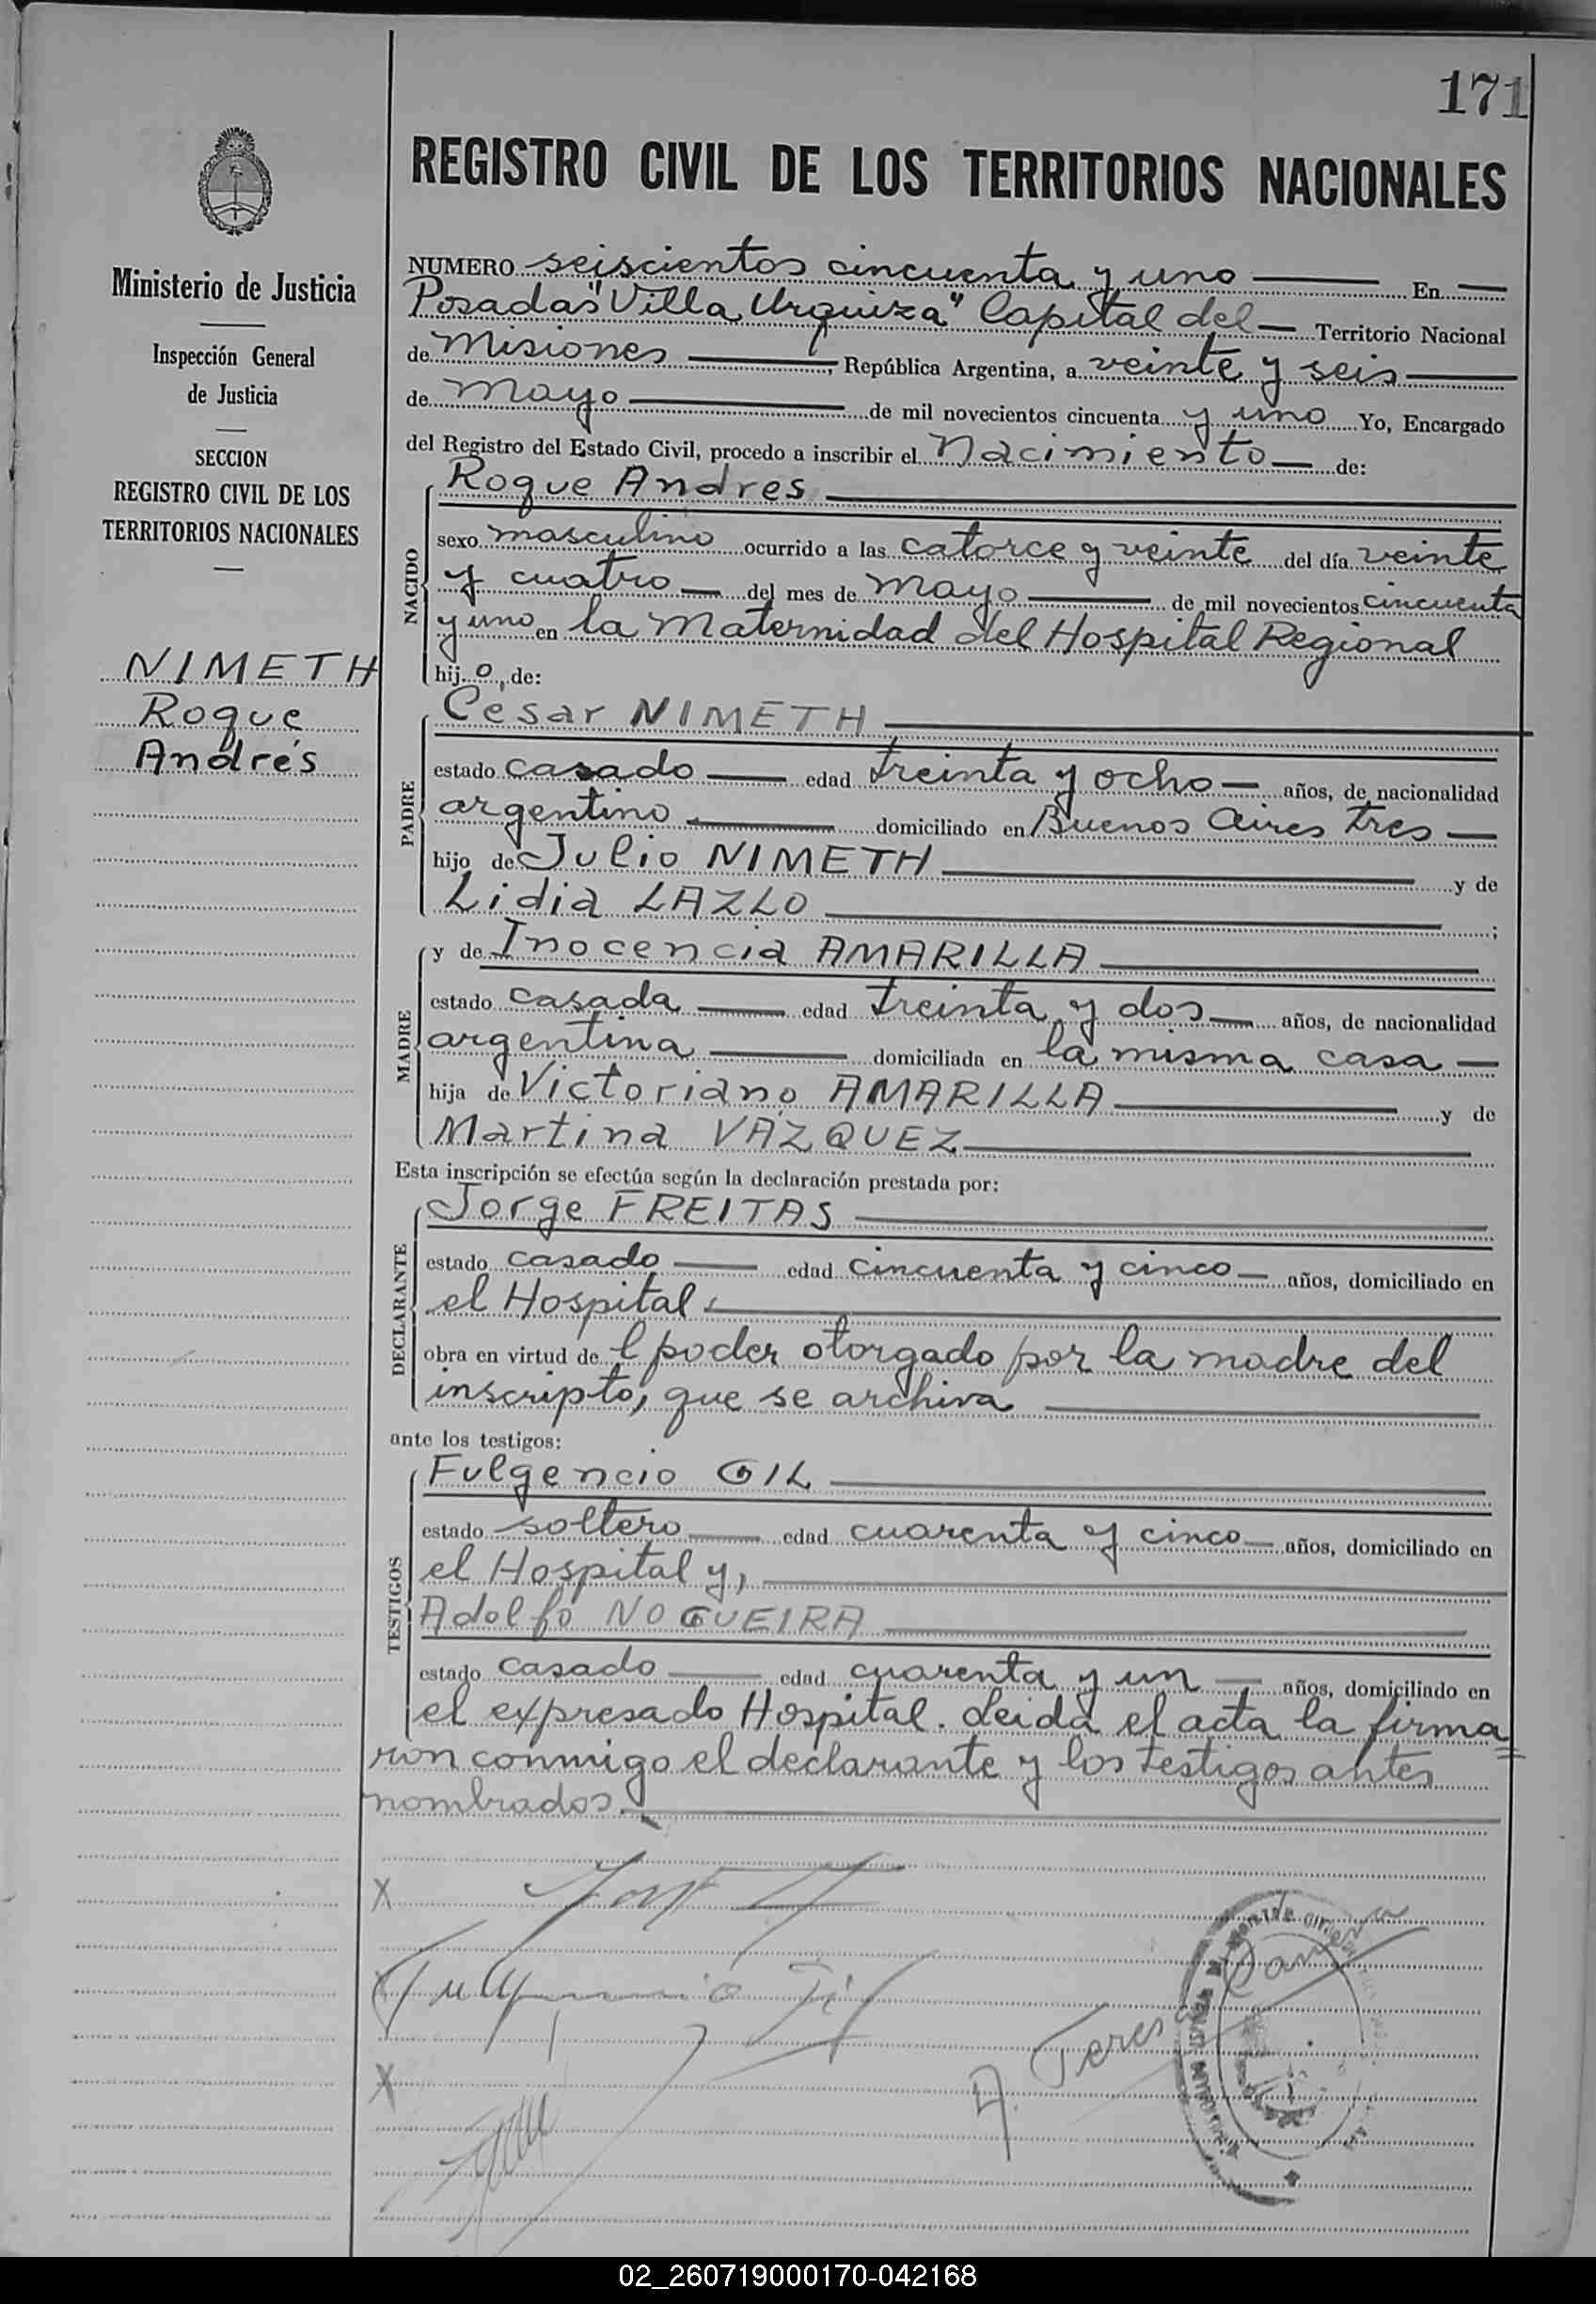 171
REGISTRO CIVIL DE LOS TERRITORIOS NACIONALES
Ministerio de Justicia
Inspección General
de Justicia
SECCION
REGISTRO CIVIL DE LOS
TERRITORIOS NACIONALES
NIMETH
Roque
Andrés
NUMERO seiscientos cincuenta y uno En
Posadas "Villa Urquiza" Capital del Territorio Nacional
de Misiones, República Argentina, a veinte y seis
de mayo de mil novecientos cincuenta y uno Yo, Encargado
del Registro del Estado Civil, procedo a inscribir el Nacimiento de:
NACIDO
Roque Andres
sexo masculino ocurrido a las catorce y veinte del día veinte
y cuatro del mes de mayo de mil novecientos cincuenta
y uno en la Maternidad del Hospital Regional
hijo, de:
PADRE
Cesar NIMETH
estado casado edad treinta y ocho años, de nacionalidad
argentino domiciliado en Buenos Aires tres
hijo de Julio NIMETH y de
Lidia LAZLO ;
MADRE
y de Inocencia AMARILLA
estado casada edad treinta y dos años, de nacionalidad
argentina domiciliada en la misma casa
hija de Victoriano AMARILLA y de
Martina VAZQUEZ
Esta inscripción se efectúa según la declaración prestada por:
DECLARANTE
Jorge FREITAS
estado casado edad cincuenta y cinco años, domiciliado en
el Hospital,
obra en virtud de l poder otorgado por la madre del
inscripto, que se archiva
ante los testigos:
TESTIGOS
Fulgencio GIL
estado soltero edad cuarenta y cinco años, domiciliado en
el Hospital y,
Adolfo NOGUEIRA
estado casado edad cuarenta y un años, domiciliado en
el expresado Hospital. Leida el acta la firma=
ron conmigo el declarante y los testigos antes
nombrados.
X
X
02_260719000170-042168